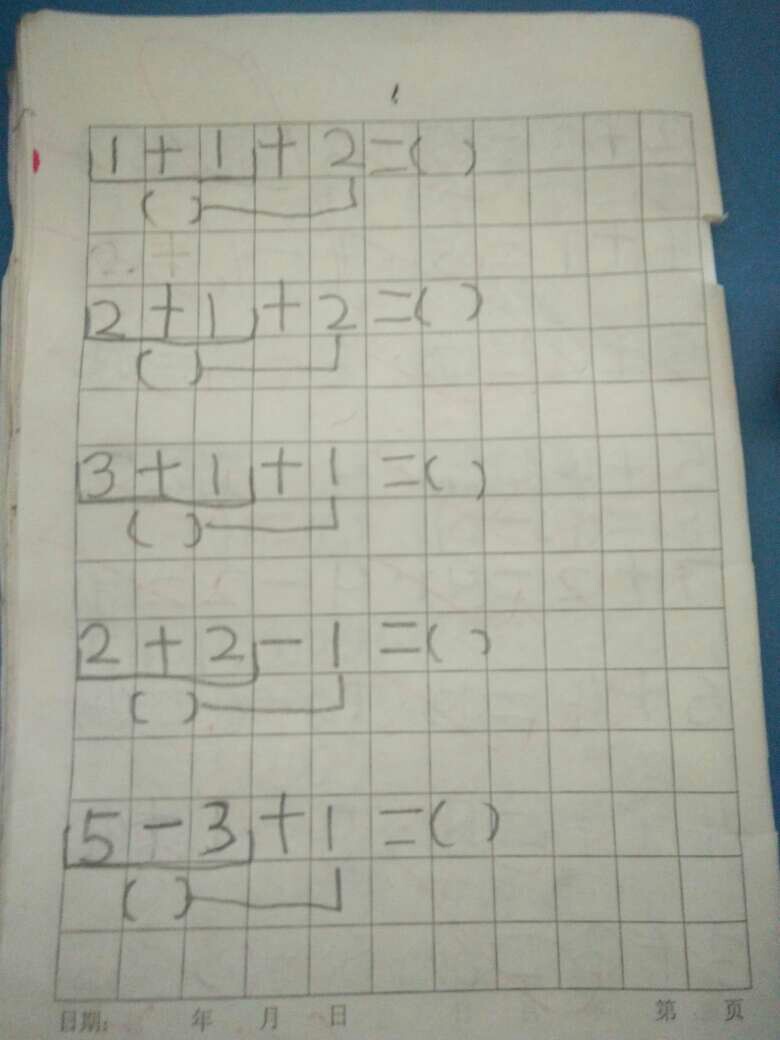 1+1+2=( )
( )
2+1+2=( )
( )
3+1+1=( )
( )
2+2-1=( )
( )
5-3+1=( )
( )
日期: 年 月 日 第 页